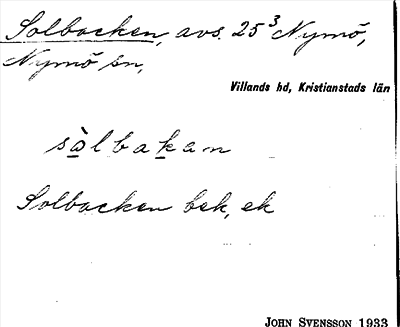 Solbacken, avs. 25³ Nymö,
Nymö sn,
Villands hd, Kristianstads län
sòlbakan
Solbacken bek, ek
JOHN SVENSSON 1933